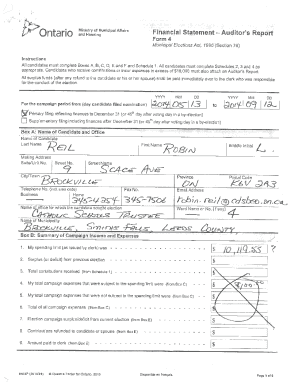 Ontario
Ministry of Municipal Affairs
and Housing
Financial Statement – Auditor's Report
Form 4
Municipal Elections Act, 1996 (Section 78)
Instructions
All candidates must complete Boxes A, B, C, D, E and F and Schedule 1. All candidates must complete Schedules 2, 3 & 4 as
appropriate. Candidates who receive contributions or incur expenses in excess of $10,000 must also attach an Auditor's Report.
All surplus funds (after any refund to the candidate or his or her spouse) shall be paid immediately over to the clerk who was responsible
for the conduct of the election.
YYYY MM DD YYYY MM DD
For the campaign period from (day candidate filed nomination) 2014 05 13 to 2014 09 12
Primary filing reflecting finances to December 31 (or 45th day after voting day in a by-election)
Supplementary filing including finances after December 31 (or 45th day after voting day in a by-election)
Box A: Name of Candidate and Office
Name of Candidate
Last Name REIL First Name ROBIN Middle Initial L.
Mailing Address
Suite/Unit No. Street No. 9 Street Name SCACE AVE
City/Town BROCKVILLE Province ON Postal Code K6V 2A3
Telephone No. Fax No. Email Address
Business Home 345-4254 345-7506
Name of office for which the candidate sought election CATHOLIC SCHOOL TRUSTEE Ward Name or No. 4
Name of Municipality
BROCKVILLE, SMITHS FALLS, LEEDS COUNTY
Box B: Summary of Campaign Income and Expenses
1. My spending limit (as issued by clerk) was $ 10,119.55 ?
2. Surplus (or deficit) from previous election $
3. Total contributions received (from Schedule 1) $
4. My total campaign expenses that were subject to the spending limit were (from Box C) $
5. My total campaign expenses that were not subject to the spending limit were (from Box C) $
6. Total of all campaign expenses (from Box C) $
7. Election campaign surplus/deficit from current election (from Box D) $
8. Contributions refunded to candidate or spouse (from Box D) $
9. Amount paid to clerk (from Box D) $
Page 1 of 5